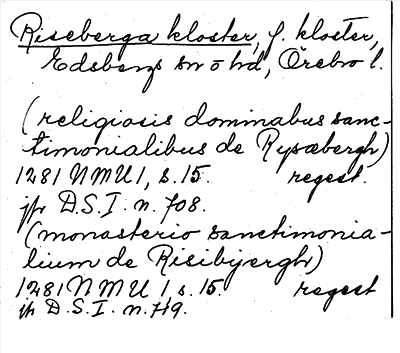 Riseberga kloster, f. kloster,
Edsbergs sn o hd, Örebro l.
(religiosis dominabus sanc-
timonialibus de Rysæbergh)
1281 NMU 1, s. 15. regest.
jfr D.S. I. n. 708.
(monasterio sanctimonia-
lium de Risibyergh)
1281 NMU 1 s. 15. regest
jfr D.S. I. n. 719.